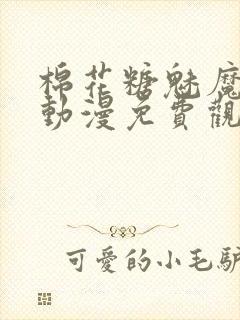 棉花糖魅魔
動漫免費觀
可愛的小毛驢